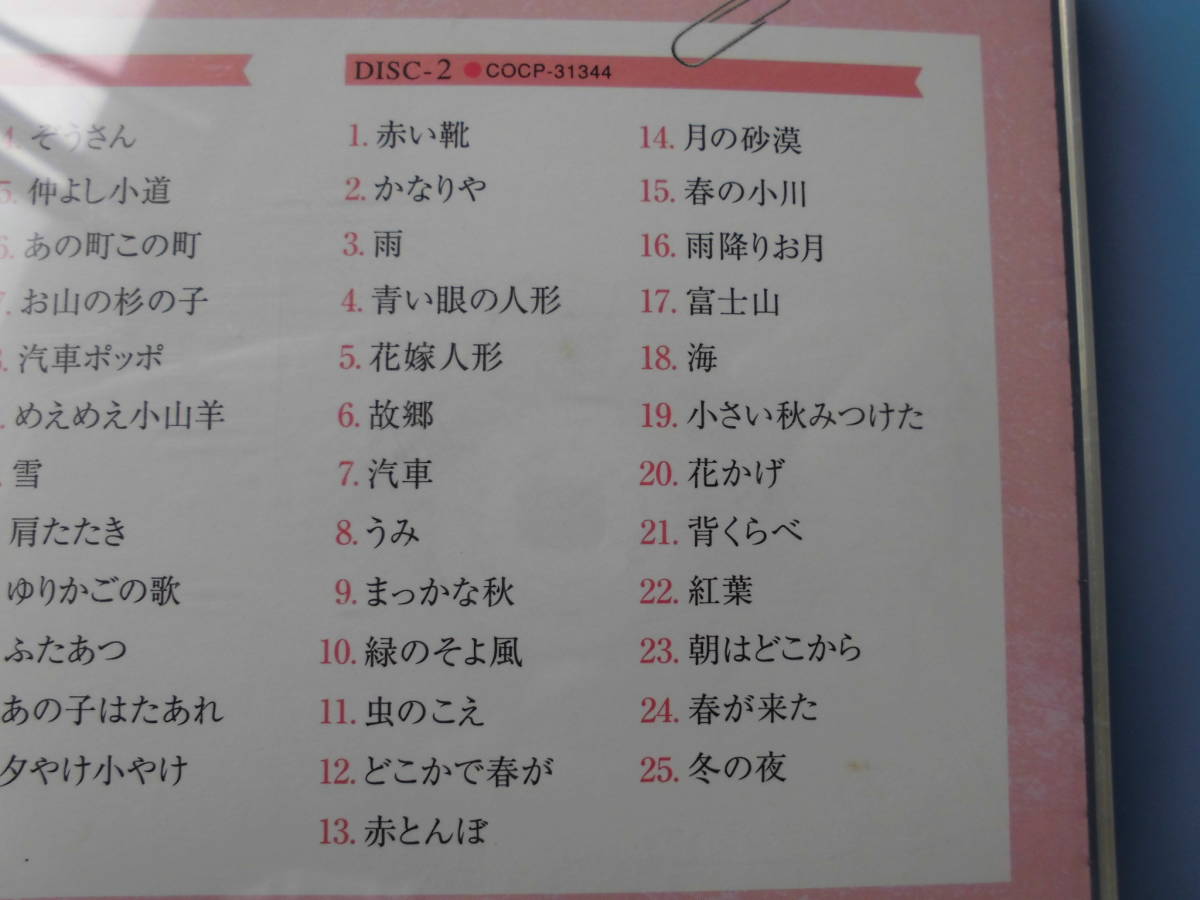 4. ぞうさん
5. 仲よし小道
6. あの町この町
7. お山の杉の子
8. 汽車ポッポ
. めえめえ小山羊
. 雪
肩たたき
ゆりかごの歌
ふたあつ
あの子はたあれ
夕やけ小やけ
DISC-2 ●COCP-31344
1. 赤い靴
2. かなりや
3. 雨
4. 青い眼の人形
5. 花嫁人形
6. 故郷
7. 汽車
8. うみ
9. まっかな秋
10. 緑のそよ風
11. 虫のこえ
12. どこかで春が
13. 赤とんぼ
14. 月の砂漠
15. 春の小川
16. 雨降りお月
17. 富士山
18. 海
19. 小さい秋みつけた
20. 花かげ
21. 背くらべ
22. 紅葉
23. 朝はどこから
24. 春が来た
25. 冬の夜